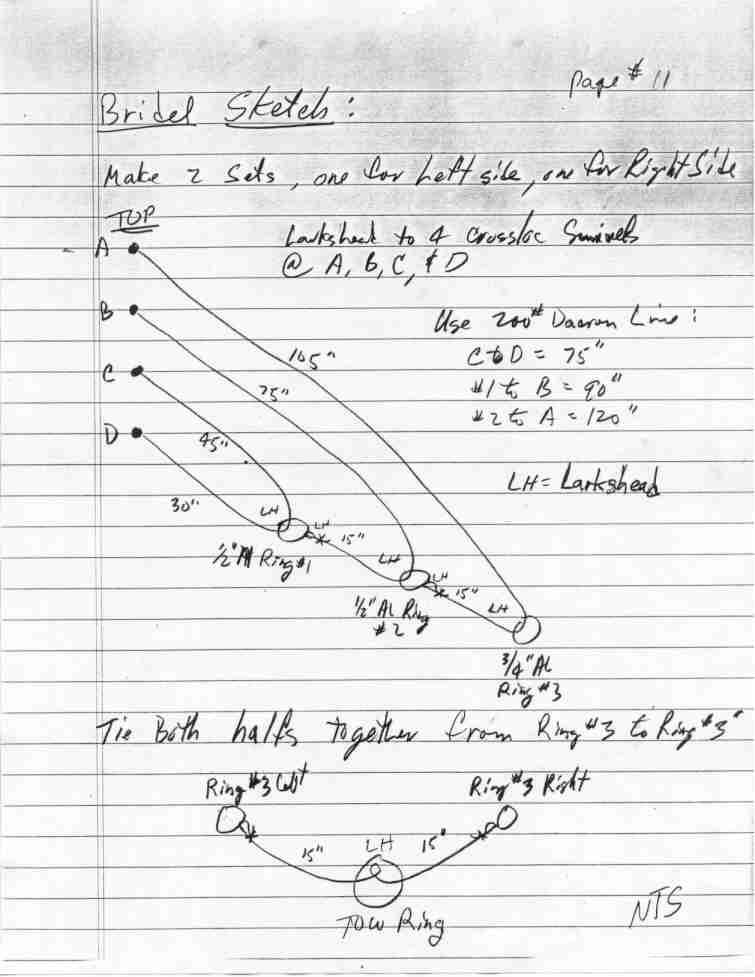 page # 11
Bridel Sketch :
Make 2 Sets, one for Left side, one for Right Side
TOP
A
Larkshead to 4 crossloc Swivels
@ A, B, C, & D
B
Use 200# Dacron Line :
C to D = 75"
#1 to B = 90"
#2 to A = 120"
105"
75"
C
45"
D
LH = Larkshead
30"
LH
LH
15"
1/2" Al Ring #1
LH
LH
15"
1/2" Al Ring
#2
LH
3/4" Al
Ring #3
Tie Both halfs together from Ring #3 to Ring #3"
Ring #3 Left
Ring #3 Right
15"
LH
15"
TOW Ring
NTS